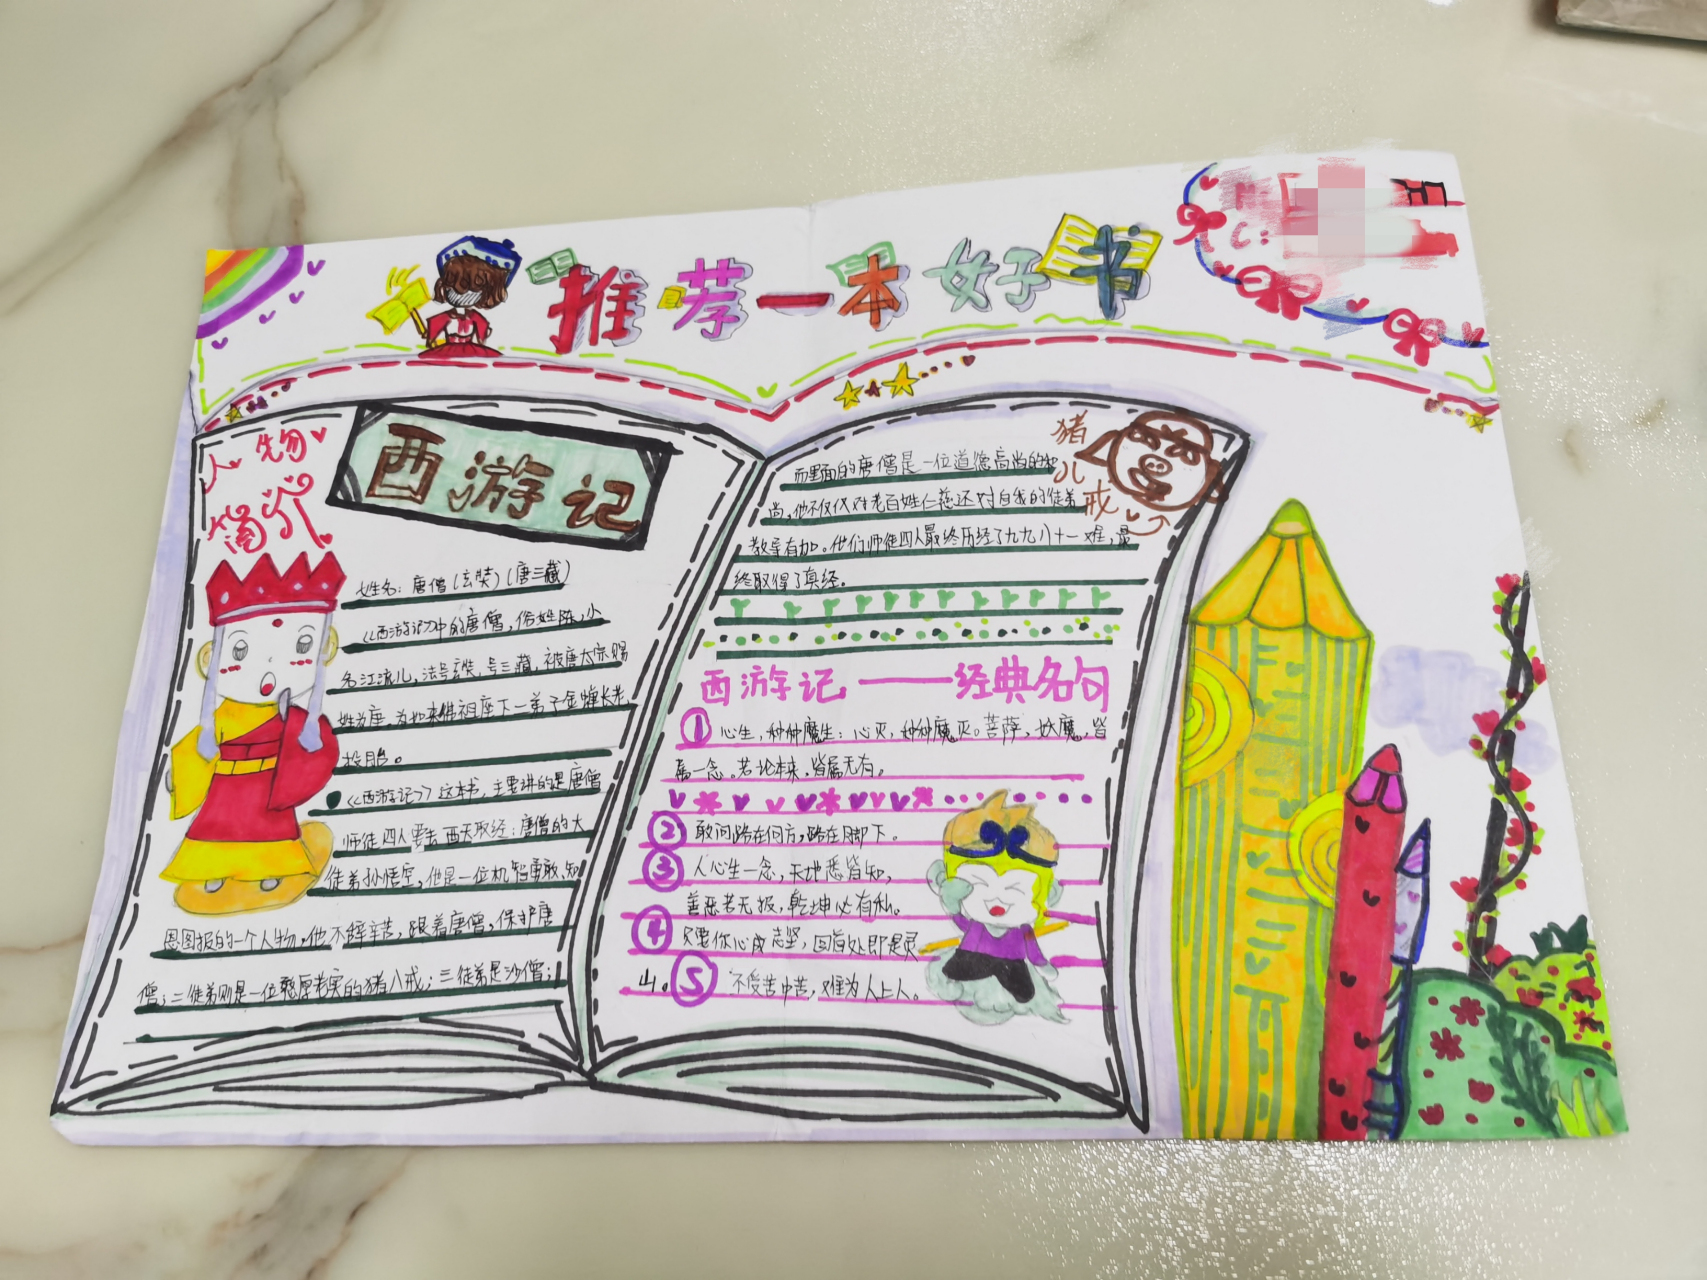 推荐一本好书
人物
简介
西游记
姓名：唐僧（玄奘）（唐三藏）
《西游记》中的唐僧，俗姓陈，小
名江流儿，法号玄奘，号三藏，被唐太宗赐
姓为唐。为如来佛祖座下一弟子金蝉长老
投胎。
《西游记》这本书，主要讲的是唐僧
师徒四人要去西天取经：唐僧的大
徒弟孙悟空，他是一位机智勇敢、知
恩图报的一个人物。他不辞辛苦，跟着唐僧，保护唐
僧；二徒弟则是一位憨厚老实的猪八戒；三徒弟是沙僧；
猪
八
戒
而里面的唐僧是一位道德高尚的和
尚，他不仅仅对老百姓仁慈还对自我的徒弟
教导有加。他们师徒四人最终历经了九九八十一难，最
终取得了真经。
西游记——经典名句
① 心生，种种魔生；心灭，种种魔灭。菩萨，妖魔，皆
属一念。若论本来，皆属无有。
② 敢问路在何方，路在脚下。
③ 人心生一念，天地悉皆知，
善恶若无报，乾坤必有私。
④ 只要你心成志坚，回首处即是灵
山。⑤ 不受苦中苦，难为人上人。